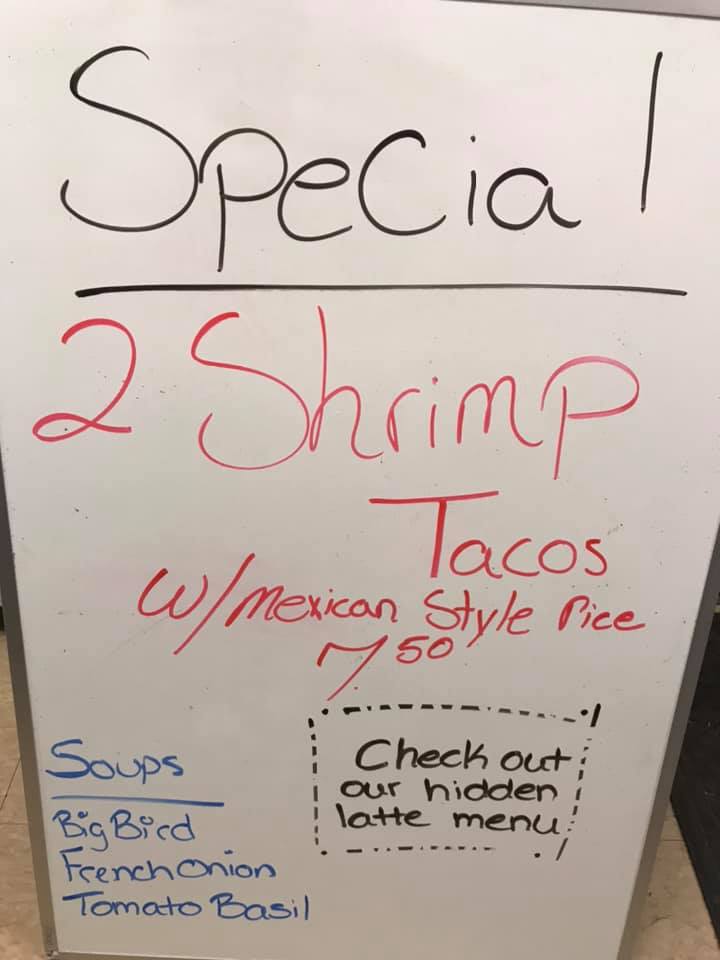 Special
2 Shrimp
Tacos
w/mexican Style Rice
7 50
Soups
Big Bird
French Onion
Tomato Basil
Check out
our hidden
latte menu